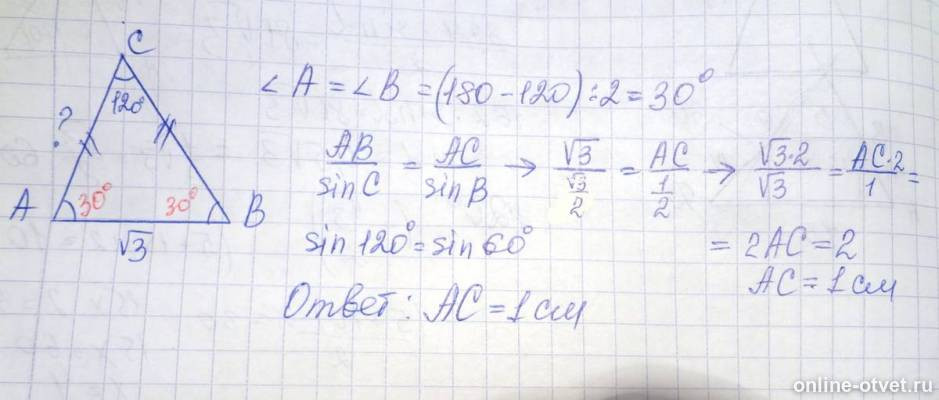 C
120
?
A 30° 30° B
√3
∠A = ∠B = (180 - 120) ÷ 2 = 30°
AB/sin C = AC/sin B → √3/(√3/2) = AC/(1/2) → √3·2/√3 = AC·2/1 =
sin 120° = sin 60°
= 2AC = 2
AC = 1 см
Ответ: AC = 1 см
online-otvet.ru